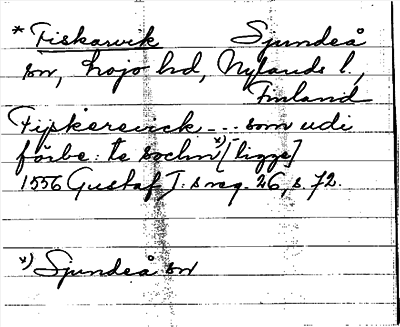 * Fiskarvik Sjundeå
sn, Lojo hd, Nylands l.,
Finland
Fijskerevick - - - som udi
förbe: te sochn x) [ligge]
1556 Gustaf I:s reg. 26, s. 72.
x) Sjundeå sn